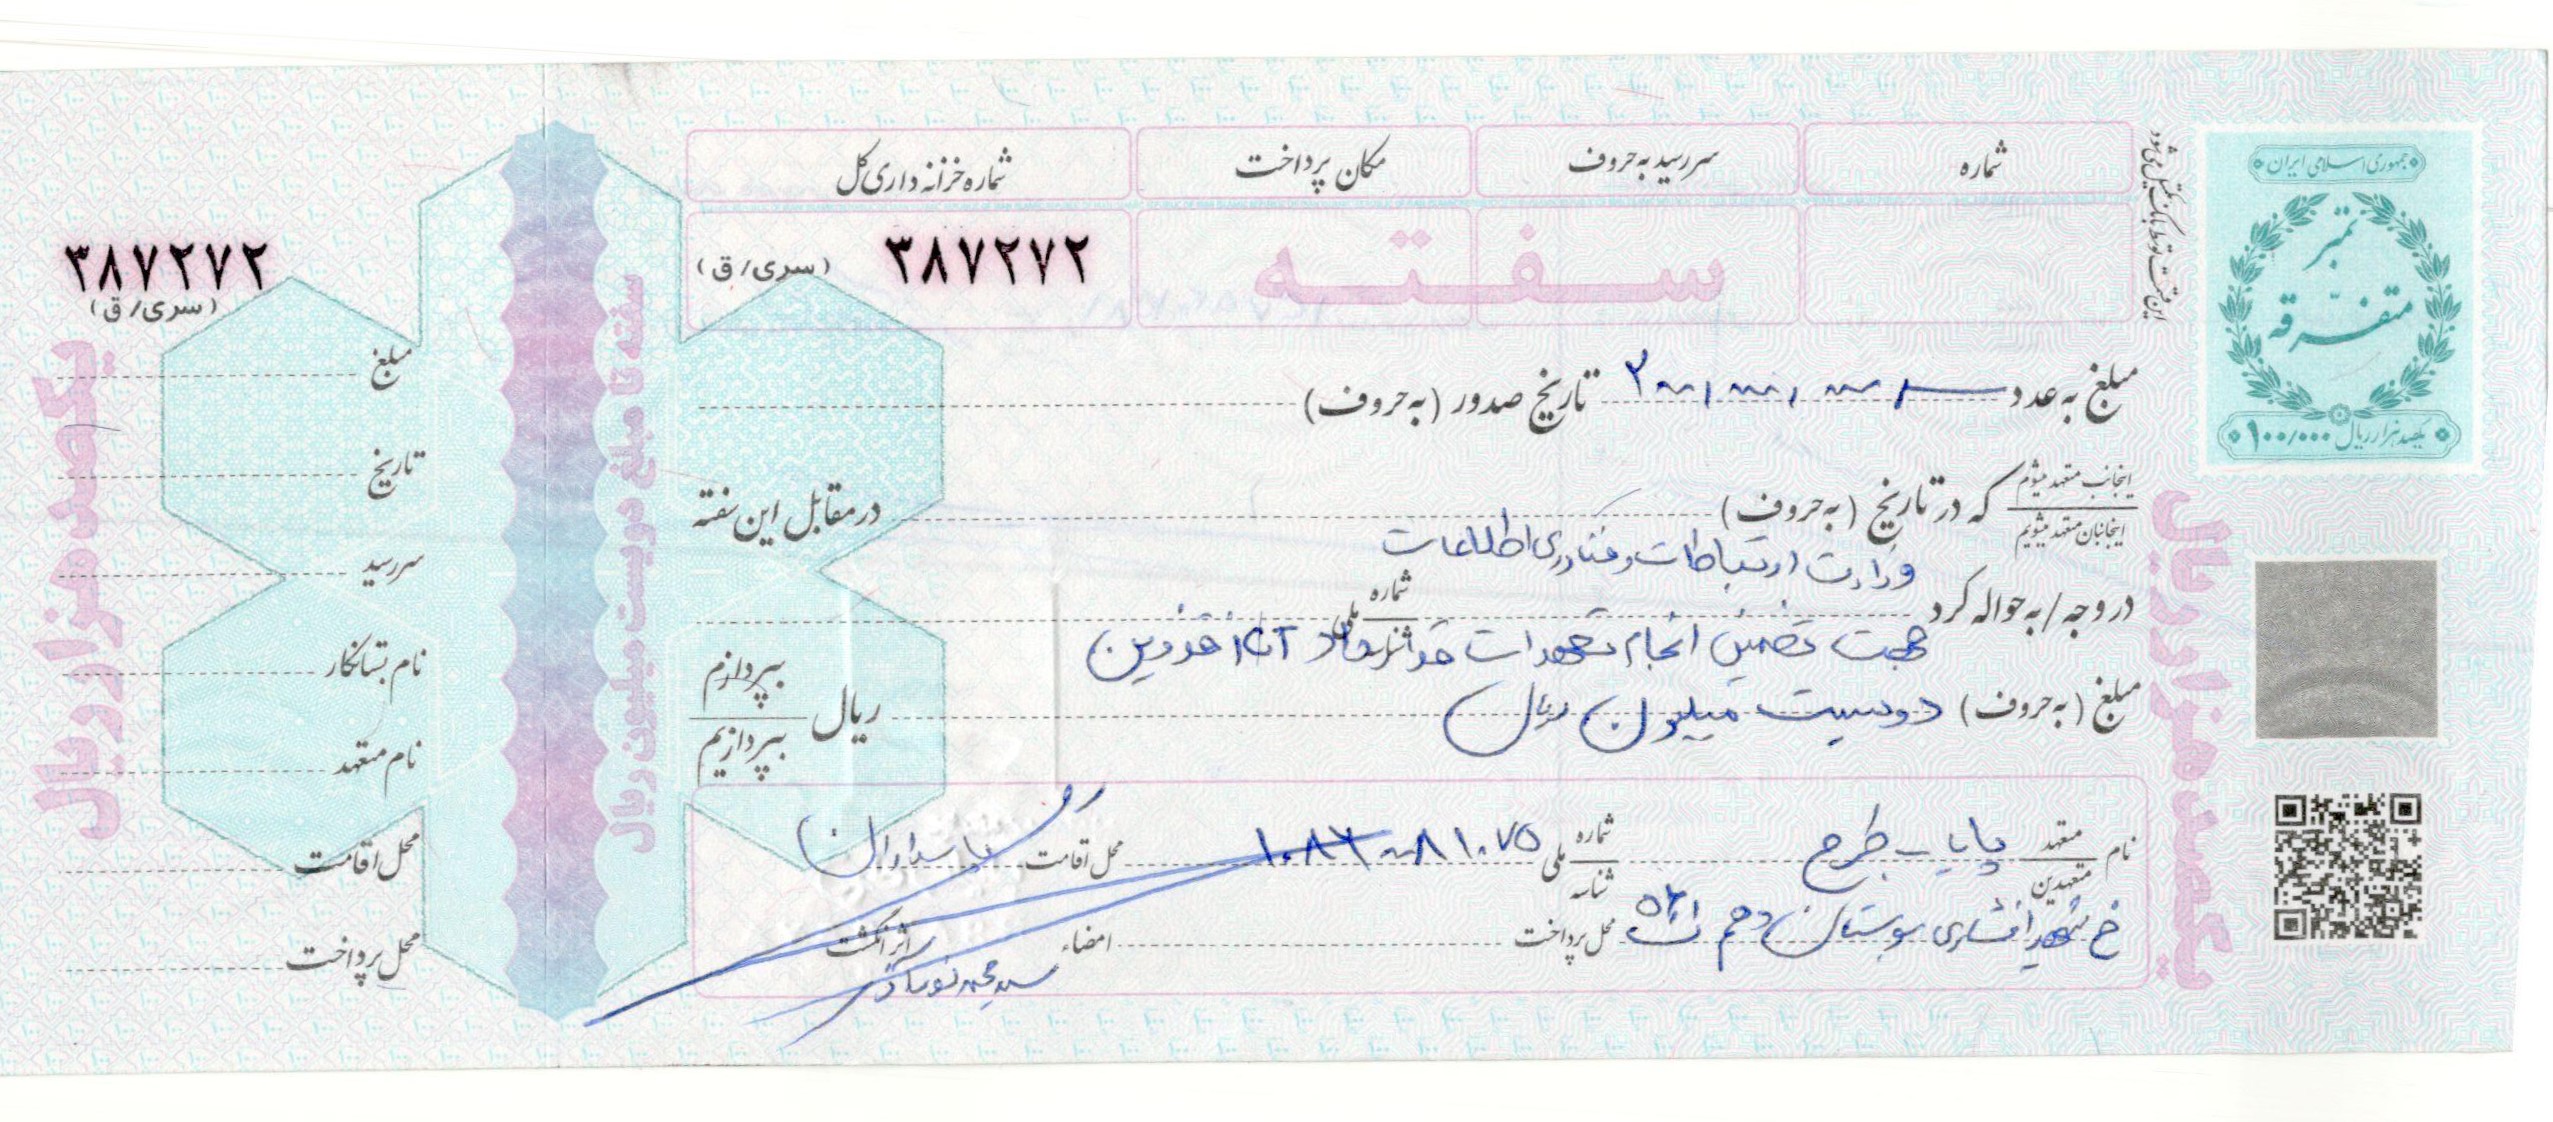 جمهوری اسلامی ایران
تمبر
متفرقه
یکصد هزار ریال ۱۰۰/۰۰۰
این قسمت توسط بانک تکمیل می‌شود
شماره
سررسید به حروف
مکان پرداخت
شماره خزانه داری کل
سفته
۳۸۷۲۷۲ (سری/ق)
مبلغ به عدد ۲۰۰٫۰۰۰٫۰۰۰ تاریخ صدور (به حروف)
اینجانب متعهد میشوم
اینجانبان متعهد میشویم
که در تاریخ (به حروف) در مقابل این سفته
در وجه / به حواله کرد وزارت ارتباطات و فناوری اطلاعات
شماره ملی
شناسه
جهت تضمین انجام تعهدات قزوین
مبلغ (به حروف) دویست میلیون ریال ریال
بپردازم
بپردازیم
نام متعهد پایاب طرح شماره ملی ۱۰۸۶۰۰۸۱۰۷۵ محل اقامت پاسداران
متعهدین شناسه
خ شهید افشاری بوستان دهم محل پرداخت امضاء اثر انگشت
سید محمد
یکصد هزار ریال
سفته تا مبلغ دویست میلیون ریال
۳۸۷۲۷۲
(سری/ق)
مبلغ
تاریخ
سررسید
نام بستانکار
نام متعهد
محل اقامت
محل پرداخت
یکصد هزار ریال